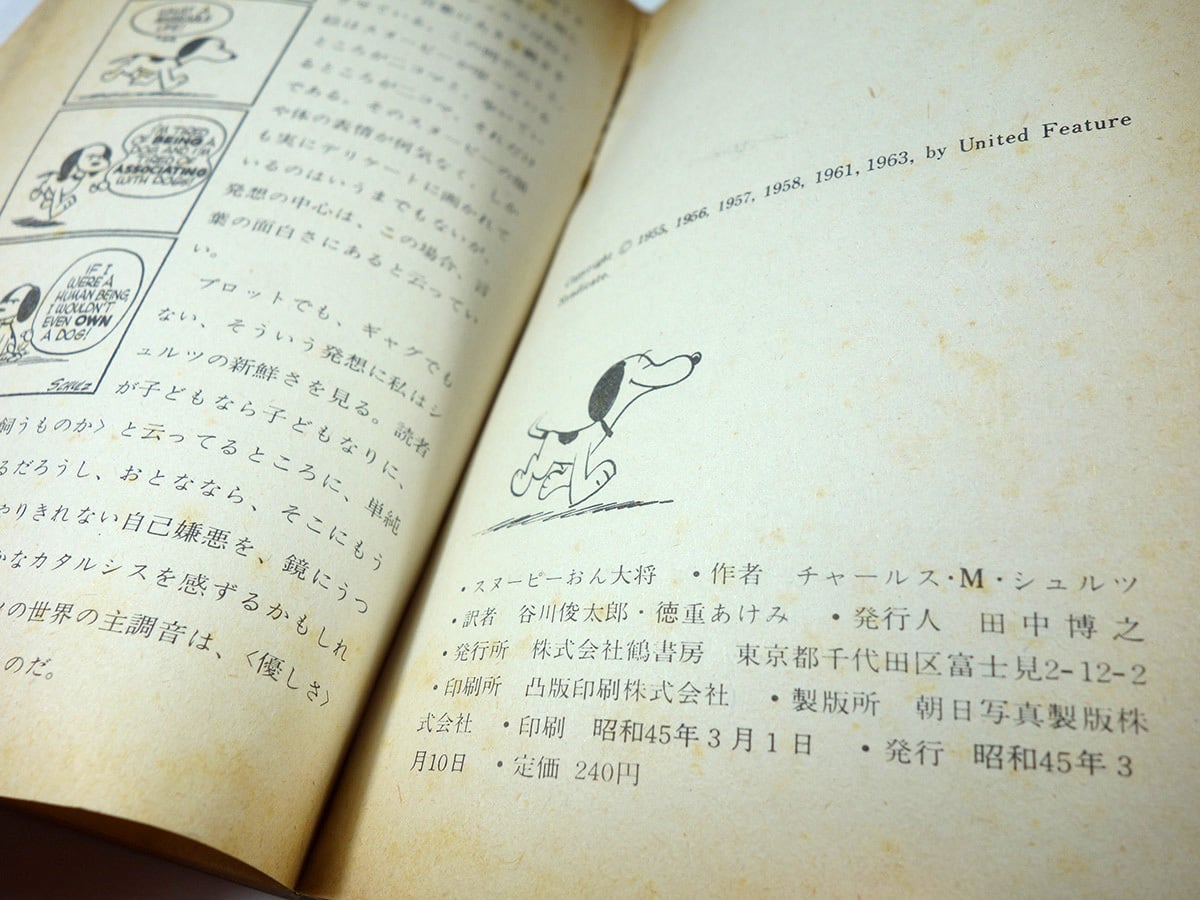 I'M TIRED
OF BEING A
DOG AND I'M
TIRED OF
ASSOCIATING
WITH DOGS!
IF I
WERE A
HUMAN BEING,
I WOULDN'T
EVEN OWN
A DOG!
SCHULZ
も実にデリケートに画かれて
いるのはいうまでもないが、
発想の中心は、この場合、言
葉の面白さにあると云ってい
い。
プロットでも、ギャグでも
ない、そういう発想に私はシ
ュルツの新鮮さを見る。読者
が子どもなら子どもなりに、
飼うものか〉と云ってるところに、単純
るだろうし、おとななら、そこにもう
やりきれない自己嫌悪を、鏡にうつ
かなカタルシスを感ずるかもしれ
の世界の主調音は、〈優しさ〉
のだ。
Copyright © 1955, 1956, 1957, 1958, 1961, 1963, by United Feature
Syndicate.
・スヌーピーおん大将 ・作者 チャールス・M・シュルツ
・訳者 谷川俊太郎・徳重あけみ ・発行人 田中博之
・発行所 株式会社鶴書房 東京都千代田区富士見2-12-2
・印刷所 凸版印刷株式会社 ・製版所 朝日写真製版株
式会社 ・印刷 昭和45年3月1日 ・発行 昭和45年3
月10日 ・定価 240円